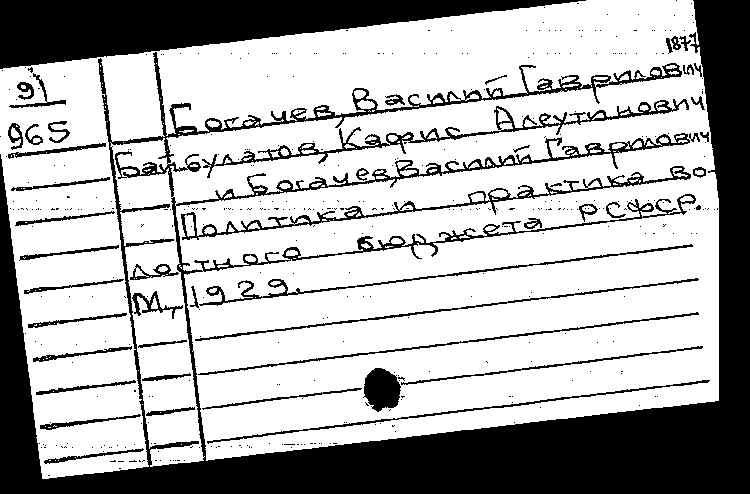 1877
91
965
Богачев, Василий Гаврилович
Байбулатов, Кафис Алеутинович
и Богачев, Василий Гаврилович
Политика и практика во-
лостного бюджета РСФСР.
М., 1929.